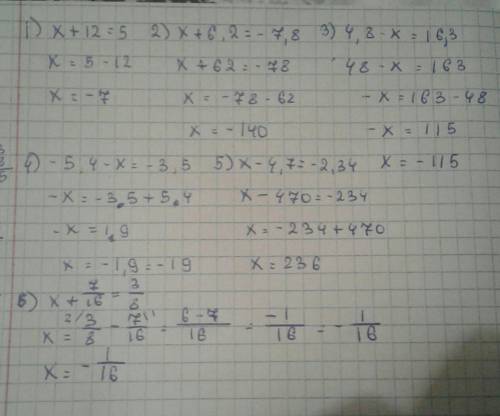 1) x + 12 = 5   2) x + 6,2 = - 7,8   3) 4,8 - x = 16,3
x = 5 - 12   x + 62 = -78   48 - x = 163
x = -7   x = -78 - 62   -x = 163 - 48
x = -140   -x = 115
4) - 5,4 - x = -3,5   5) x - 4,7 = -2,34   x = -115
-x = -3,5 + 5,4   x - 470 = -234
-x = 1,9   x = -234 + 470
x = -1,9 = -19   x = 236
6) x + 7/16 = 3/8
x = 2/ 3/8 - 7/16 1/ = 6-7/16 = -1/16 = - 1/16
x = - 1/16